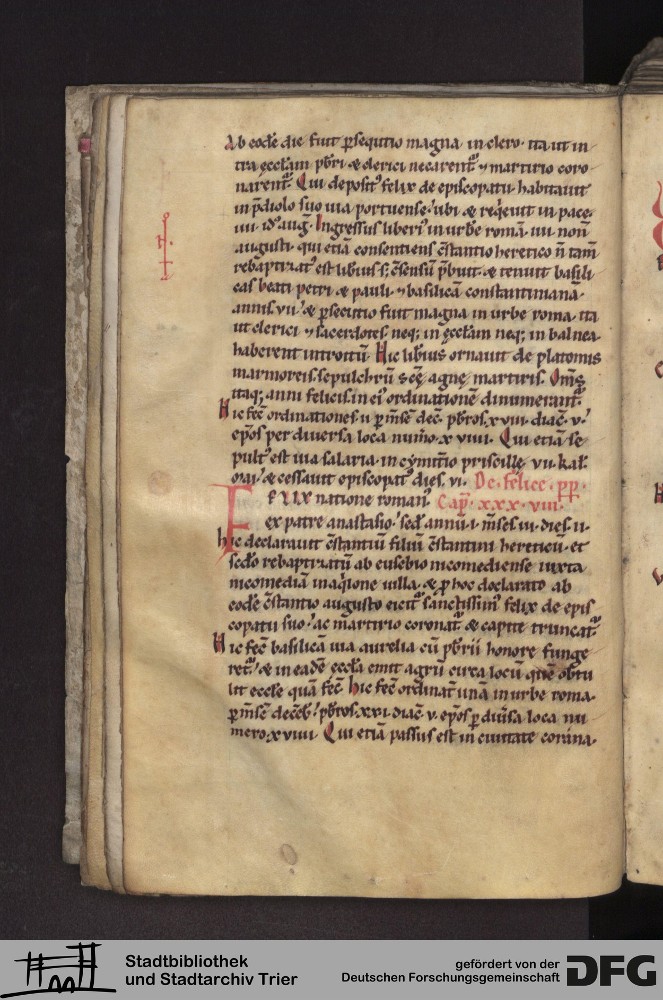 Ab eodē die fuit ꝑsequtio magna in clero. ita ut in
tra ęccłam p̄bri ⁊ clerici necarent᷑ ⁊ martirio coro
narent᷑. Qui deposit᷒ felix de episcopatu habitauit
in p̄diolo suo uia portuense. ubi ⁊ req̇euit in pace
iiii id᷒ aug̅. Ingressus liberi᷒ in urbē romā. iiii noñ
augusti. qui etiā consentiens ↄstantio heretico
rebaptizat᷒ est ⁊ tenuit basili
cas beati petri ⁊ pauli ⁊ basilicā constantinianā.
annis vii. ⁊ ꝑsecutio fuit magna in urbe roma. ita
ut clerici ⁊ sacerdotes neq; in ęccłam neq; in balnea
haberent introitū. Hic liberius ornauit de platomis
marmoreis. sepulchrū scę̄ agnę martiris. Om̄s
itaq; anni felicis. in ei᷒ ordinationē dinumerant᷑.
Hic fec̄ ordinationes. ii ꝑ m̄se dec̄. p̄bros. xviii. diac̄. v.
ep̄os per diuersa loca num̄o. xviiii. Qui etiā se
pult᷒ est uia salaria. in cymit̄io priscillę. vii. kał.
mai. ⁊ cessauit episcopat᷒ dies. vi. De felice. pp̄.
FELIX natione roman᷒. Cap̄. xxx. viii.
ex patre anastasio. sed̄ annū. i. m̄ses. iii. dies. ii.
hic declarauit ↄstantiū filiū ↄstantini hereticū. et
sec̄do rebaptizatū ab eusebio nicomediense iuxta
nicomediā in aq̇lone uilla. ⁊ ꝑ hoc declarato ab
eodē ↄstantio augusto eicit᷑ sanctissim᷒ felix de epis
copatu suo. ac martirio coronat᷑ ⁊ capite truncat᷑.
Hic fec̄ basilicā uia aurelia cū p̄brii honore funge
ret᷑. ⁊ in eadē ęccła emit agrū circa locū quē obtu
lit eccłe quā fec̄. Hic fec̄ ordinat̄ unā in urbe roma.
ꝑ m̄se decēb̄. p̄bros. xxi. diac̄. v. ep̄os ꝑ diūsa loca nu
mero. xviiii. Qui etiā passus est in ciuitate corana.
Stadtbibliothek
und Stadtarchiv Trier
gefördert von der
Deutschen Forschungsgemeinschaft
DFG